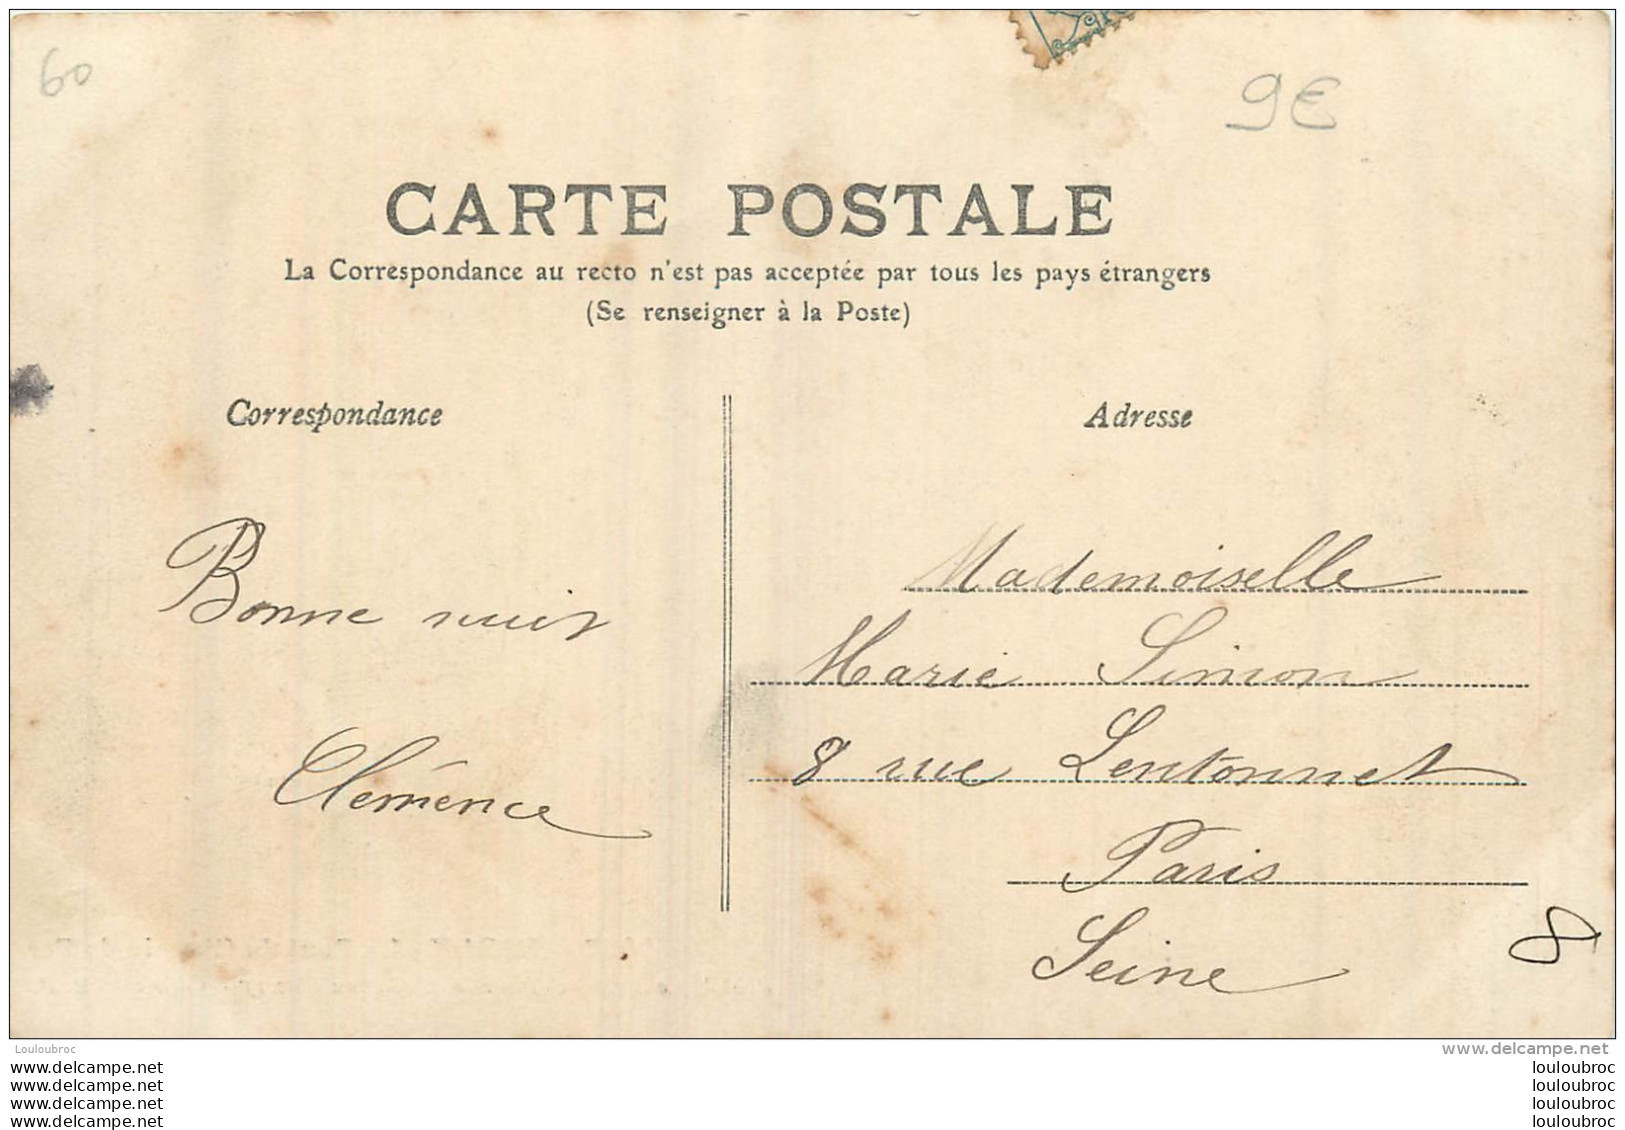 60
9€
CARTE POSTALE
La Correspondance au recto n'est pas acceptée par tous les pays étrangers
(Se renseigner à la Poste)
Correspondance
Adresse
Bonne nuit
Clémence
Mademoiselle
Marie Simon
8 rue Lentonnet
Paris
Seine
8
Louloubroc
www.delcampe.net
www.delcampe.net
www.delcampe.net
www.delcampe.net
www.delcampe.net
louloubroc
louloubroc
louloubroc
louloubroc